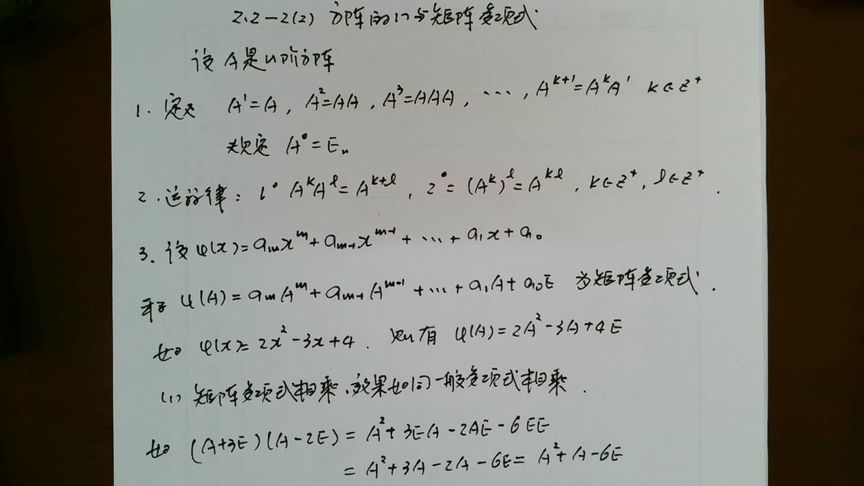 2.2-2(2) 方阵的幂与矩阵多项式
设 A是n阶方阵
1. 定义 A¹=A, A²=AA, A³=AAA, ⋯, Aᵏ⁺¹=AᵏA¹ k∈Z⁺
规定 A⁰=Eₙ
2. 运算律: 1° AᵏAˡ=Aᵏ⁺ˡ, 2°= (Aᵏ)ˡ=Aᵏˡ, k∈Z⁺, l∈Z⁺.
3. 设 φ(x)=aₘxᵐ+aₘ₋₁xᵐ⁻¹+⋯+a₁x+a₀
称 φ(A)=aₘAᵐ+aₘ₋₁Aᵐ⁻¹+⋯+a₁A+a₀E 为矩阵多项式.
如 φ(x)=2x²-3x+4. 则有 φ(A)=2A²-3A+4E
(1) 矩阵多项式相乘,效果如同一般多项式相乘.
如 (A+3E)(A-2E)=A²+3EA-2AE-6EE
=A²+3A-2A-6E=A²+A-6E